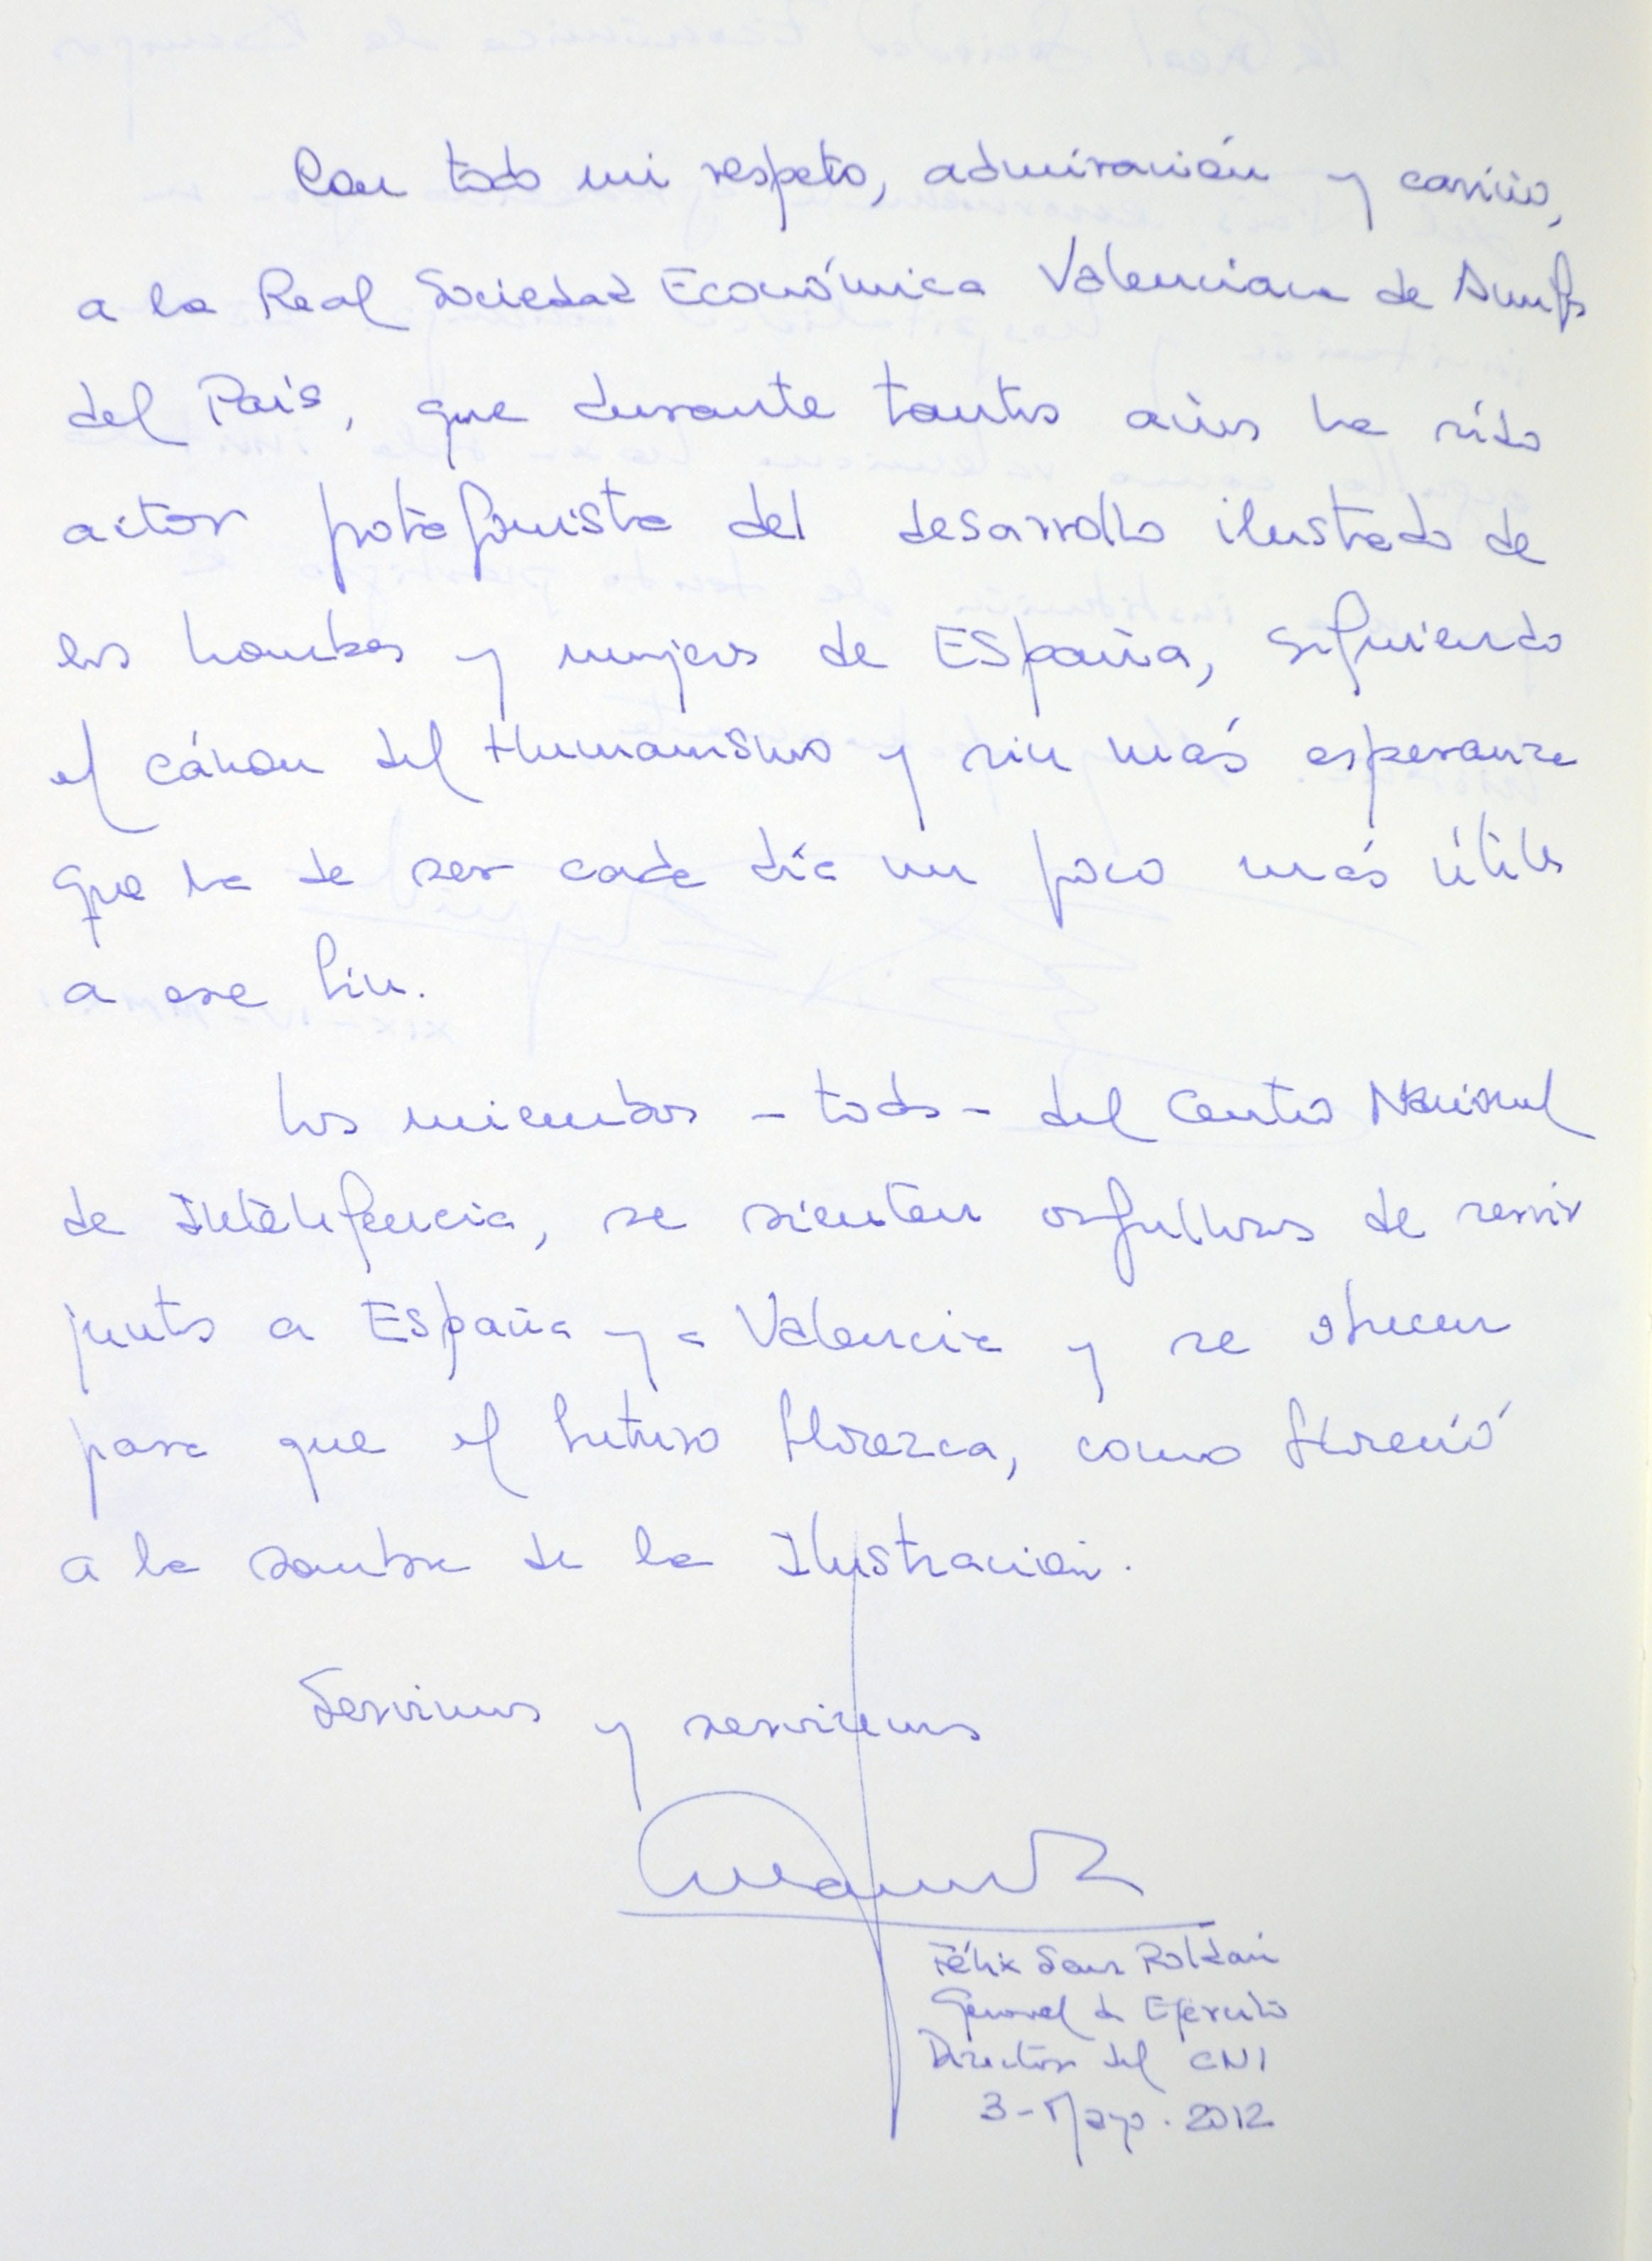 Con todo mi respeto, admiración y cariño,
a la Real Sociedad Económica Valenciana de Amigos
del País, que durante tantos años ha sido
actor protagonista del desarrollo ilustrado de
los hombres y mujeres de España, siguiendo
el cánon del Humanismo y sin más esperanza
que la de ser cada día un poco más útiles
a ese fin.
Los miembros - todos - del Centro Nacional
de Inteligencia, se sienten orgullosos de servir
juntos a España y a Valencia y se ofrecen
para que el futuro florezca, como floreció
a la sombra de la Ilustración.
Servimos y serviremos
Félix Sanz Roldán
General de Ejército
Director del CNI
3-Mayo.2012